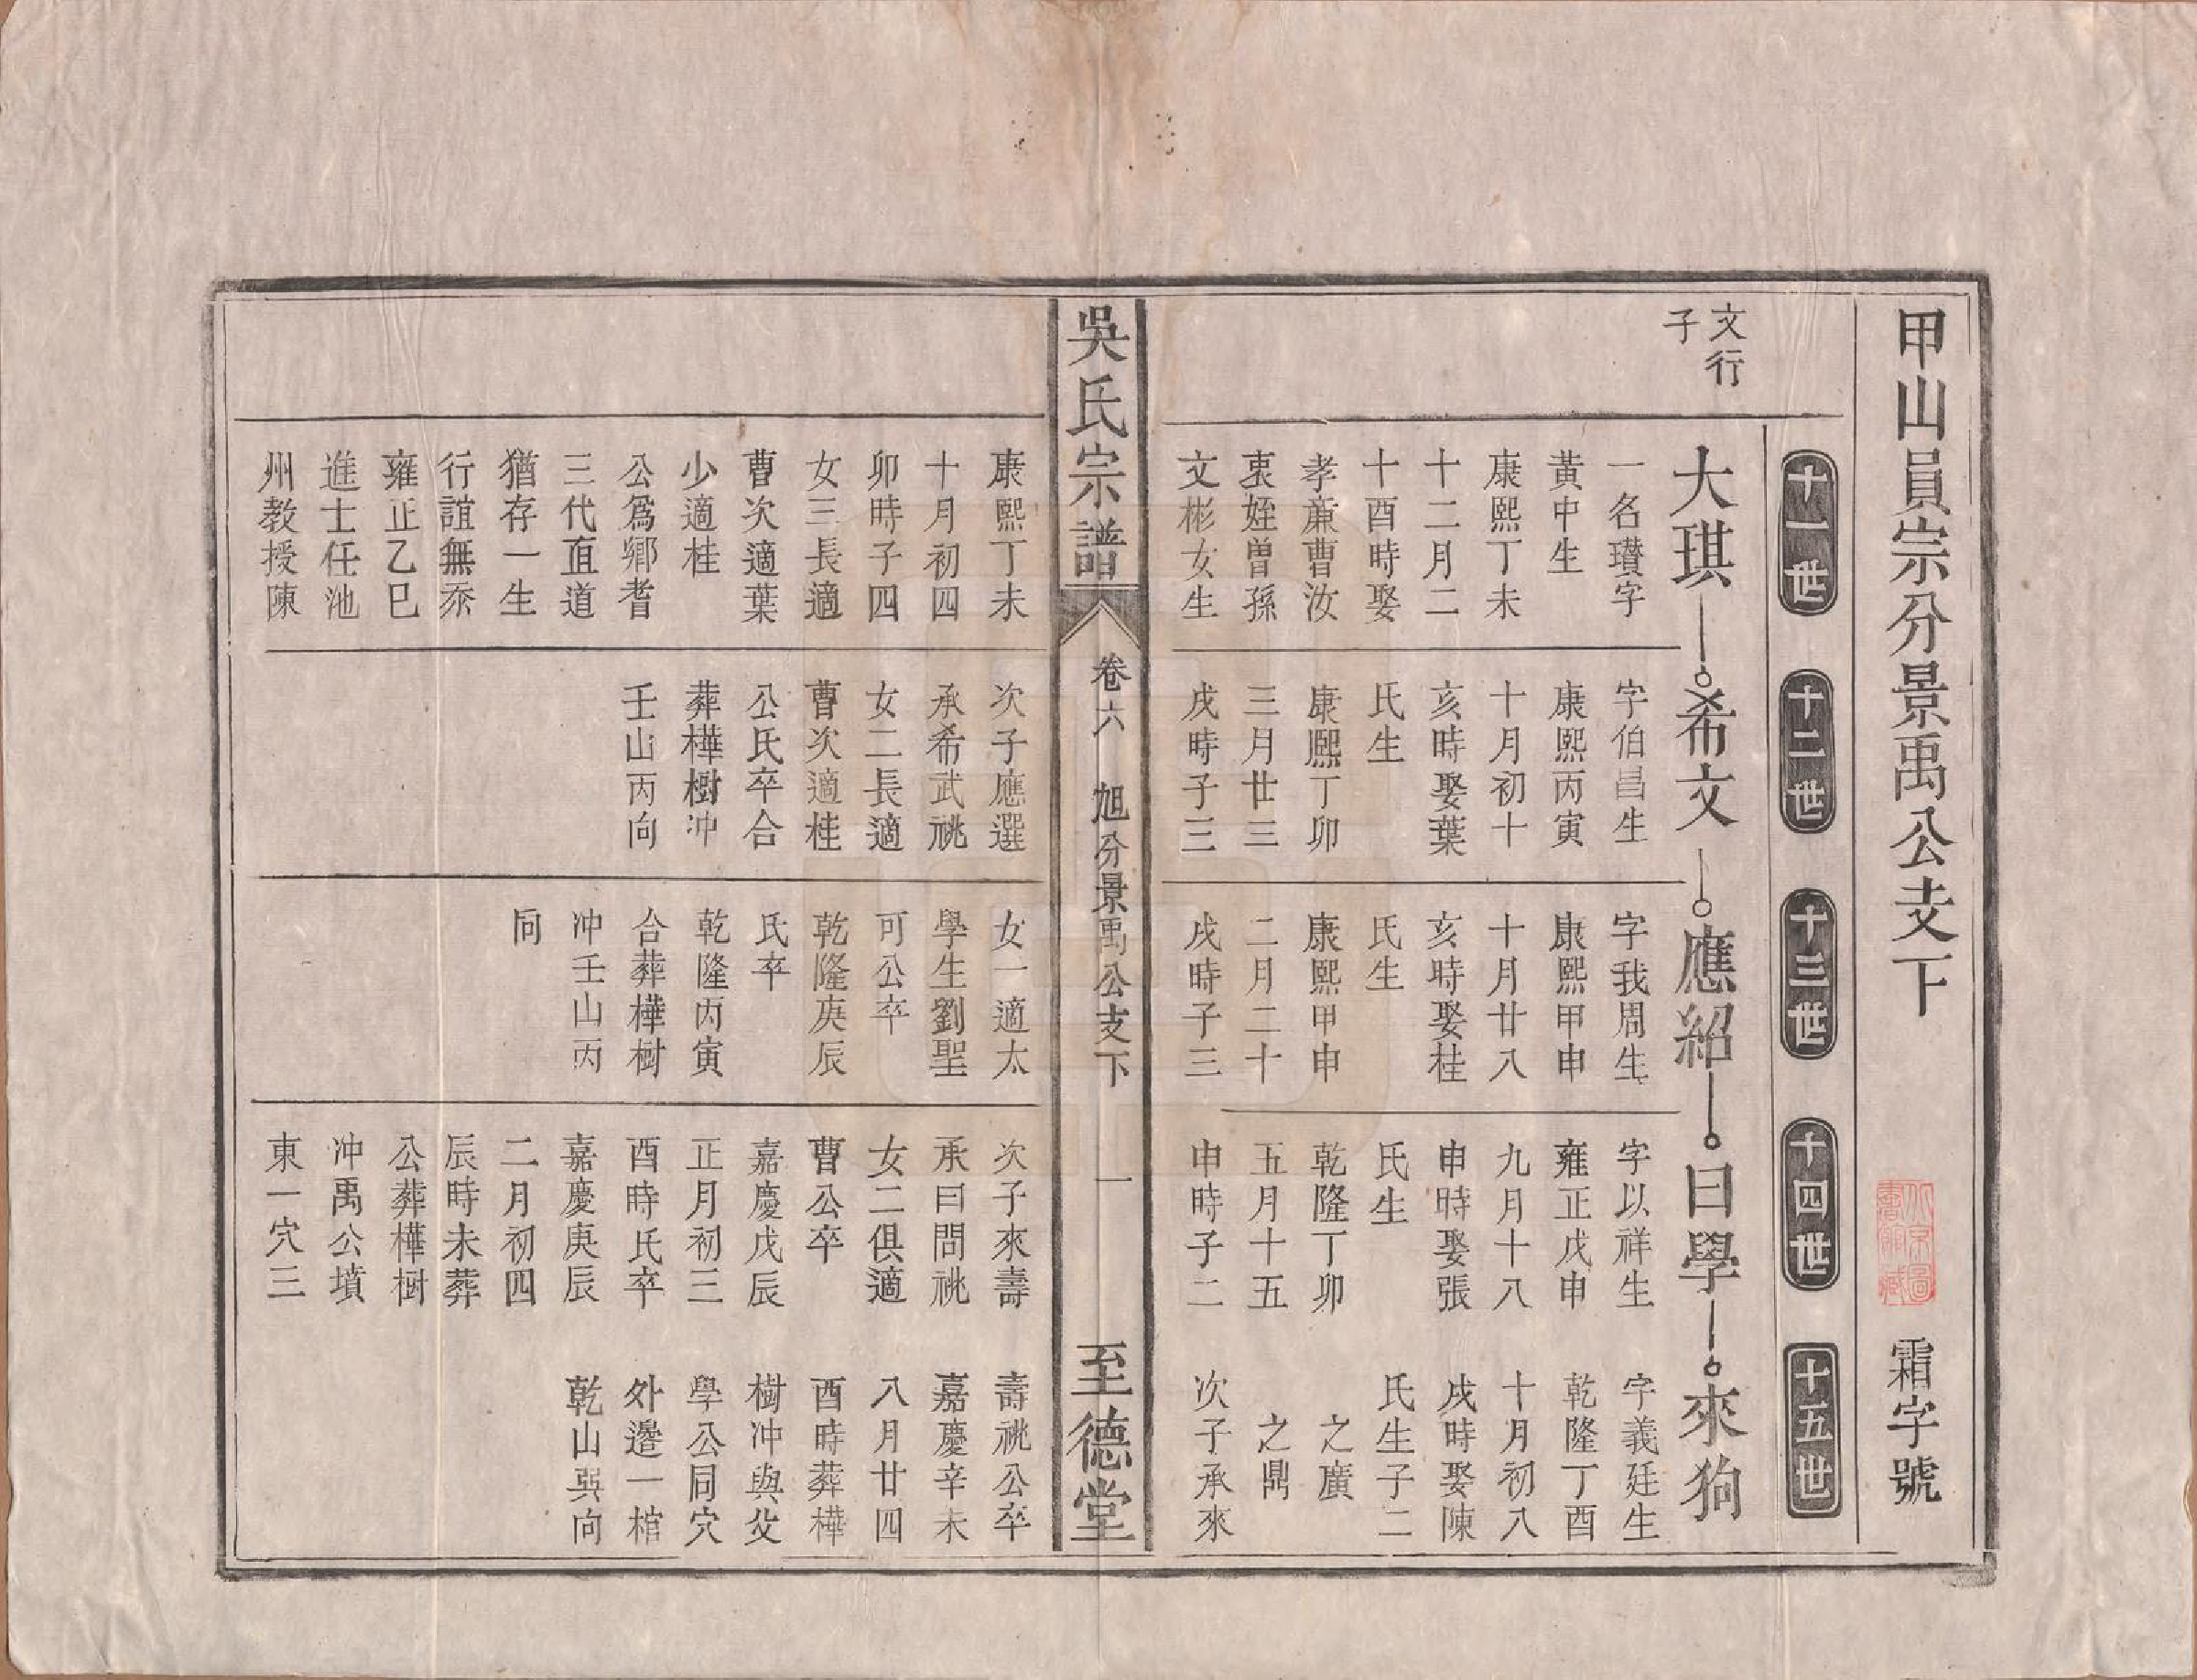 甲山員宗分景禹公支下
霜字號
十一世
十二世
十三世
十四世
十五世
文行
子
大琪
希文
應紹
曰學
來狗
一名瓚字
黃中生
康熙丁未
十二月二
十酉時娶
孝亷曹汝
衷姪曾孫
文彬女生
字伯昌生
康熙丙寅
十月初十
亥時娶葉
氏生
康熙丁卯
三月廿三
戌時子三
字我周生
康熙甲申
十月廿八
亥時娶桂
氏生
康熙甲申
二月二十
戌時子三
字以祥生
雍正戊申
九月十八
申時娶張
氏生
乾隆丁卯
五月十五
申時子二
字義廷生
乾隆丁酉
十月初八
戌時娶陳
氏生子二
之廣
之鼎
次子承來
吳氏宗譜
卷六
旭分景禹公支下
一
至德堂
康熙丁未
十月初四
卯時子四
女三長適
曹次適葉
少適桂
公爲鄉耆
三代直道
猶存一生
行誼無忝
雍正乙巳
進士任池
州教授陳
次子應選
承希武祧
女二長適
曹次適桂
公氏卒合
葬樺樹冲
壬山丙向
女一適太
學生劉聖
可公卒
乾隆庚辰
氏卒
乾隆丙寅
合葬樺樹
冲壬山丙
向
次子來壽
承曰問祧
女二俱適
曹公卒
嘉慶戊辰
正月初三
酉時氏卒
嘉慶庚辰
二月初四
辰時未葬
公葬樺樹
冲禹公墳
東一穴三
壽祧公卒
嘉慶辛未
八月廿四
酉時葬樺
樹冲與父
學公同穴
外邊一棺
乾山巽向